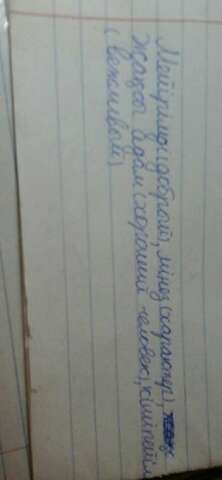 Мейірімді (добрый), мінез (характер),
Жақсы адам (хороший человек), кішіпейіл
(вежливый)